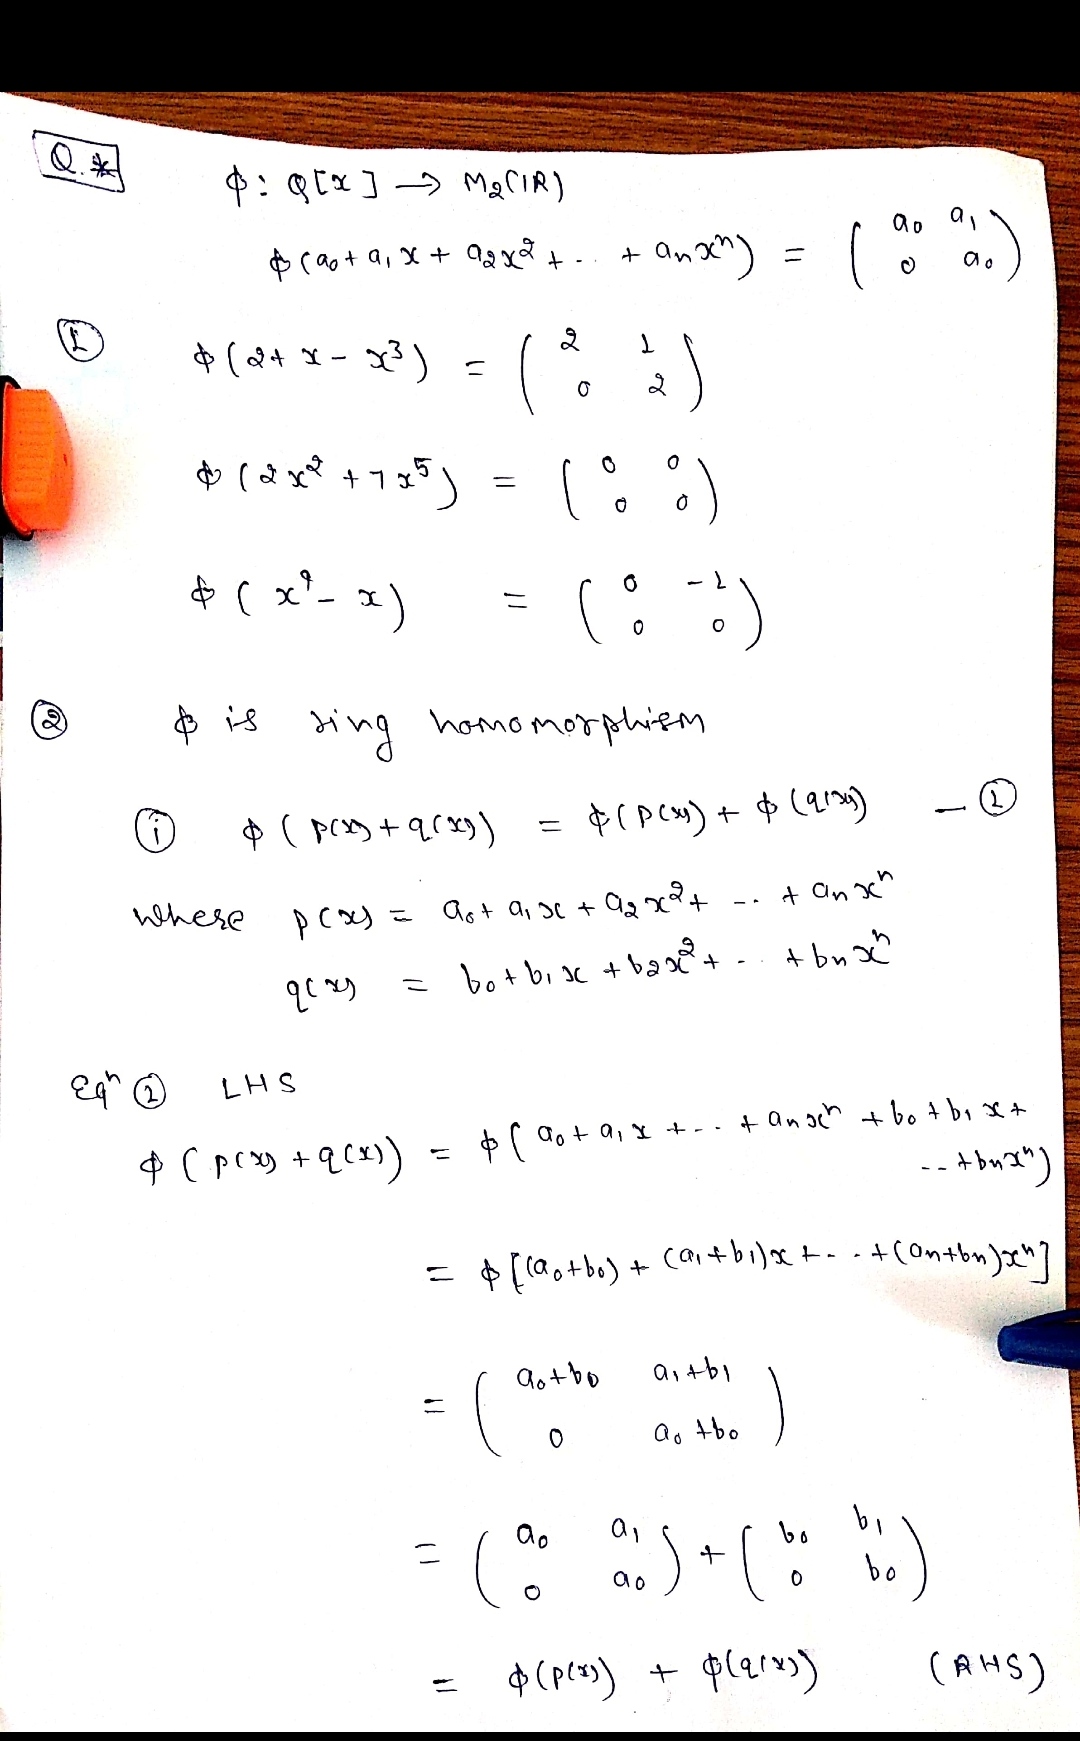 Q.*
φ: Q[x] → M₂(IR)
φ(a₀ + a₁x + a₂x² + .. + aₙxⁿ) = ( a₀ a₁
0 a₀ )
① φ(2 + x - x³) = ( 2 1
0 2 )
φ(2x² + 7x⁵) = ( 0 0
0 0 )
φ(x⁹ - x) = ( 0 -1
0 0 )
② φ is ring homomorphism
ⓘ φ(p(x) + q(x)) = φ(p(x)) + φ(q(x)) — ①
where p(x) = a₀ + a₁x + a₂x² + -. + aₙxⁿ
q(x) = b₀ + b₁x + b₂x² + - .. + bₙxⁿ
Eqⁿ ① LHS
φ(p(x) + q(x)) = φ( a₀ + a₁x + -.. + aₙxⁿ + b₀ + b₁x +
-- + bₙxⁿ)
= φ[(a₀+b₀) + (a₁+b₁)x + - .. + (aₙ+bₙ)xⁿ]
= ( a₀+b₀ a₁+b₁
0 a₀+b₀ )
= ( a₀ a₁
0 a₀ ) + ( b₀ b₁
0 b₀ )
= φ(p(x)) + φ(q(x)) (RHS)